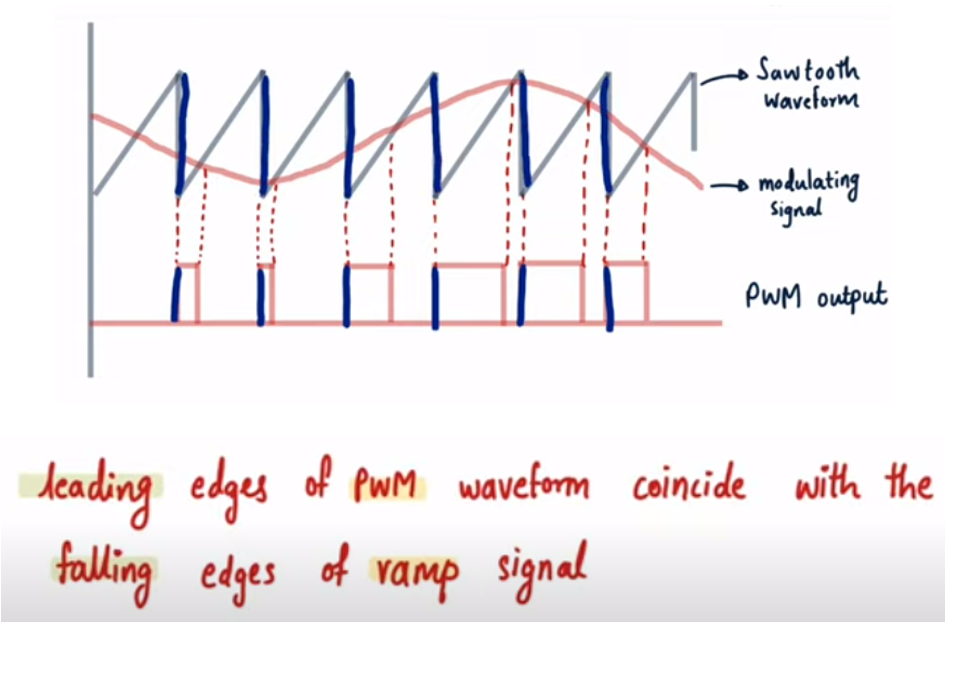 Sawtooth
waveform
modulating
signal
PWM output
leading edges of PWM waveform coincide with the
falling edges of ramp signal